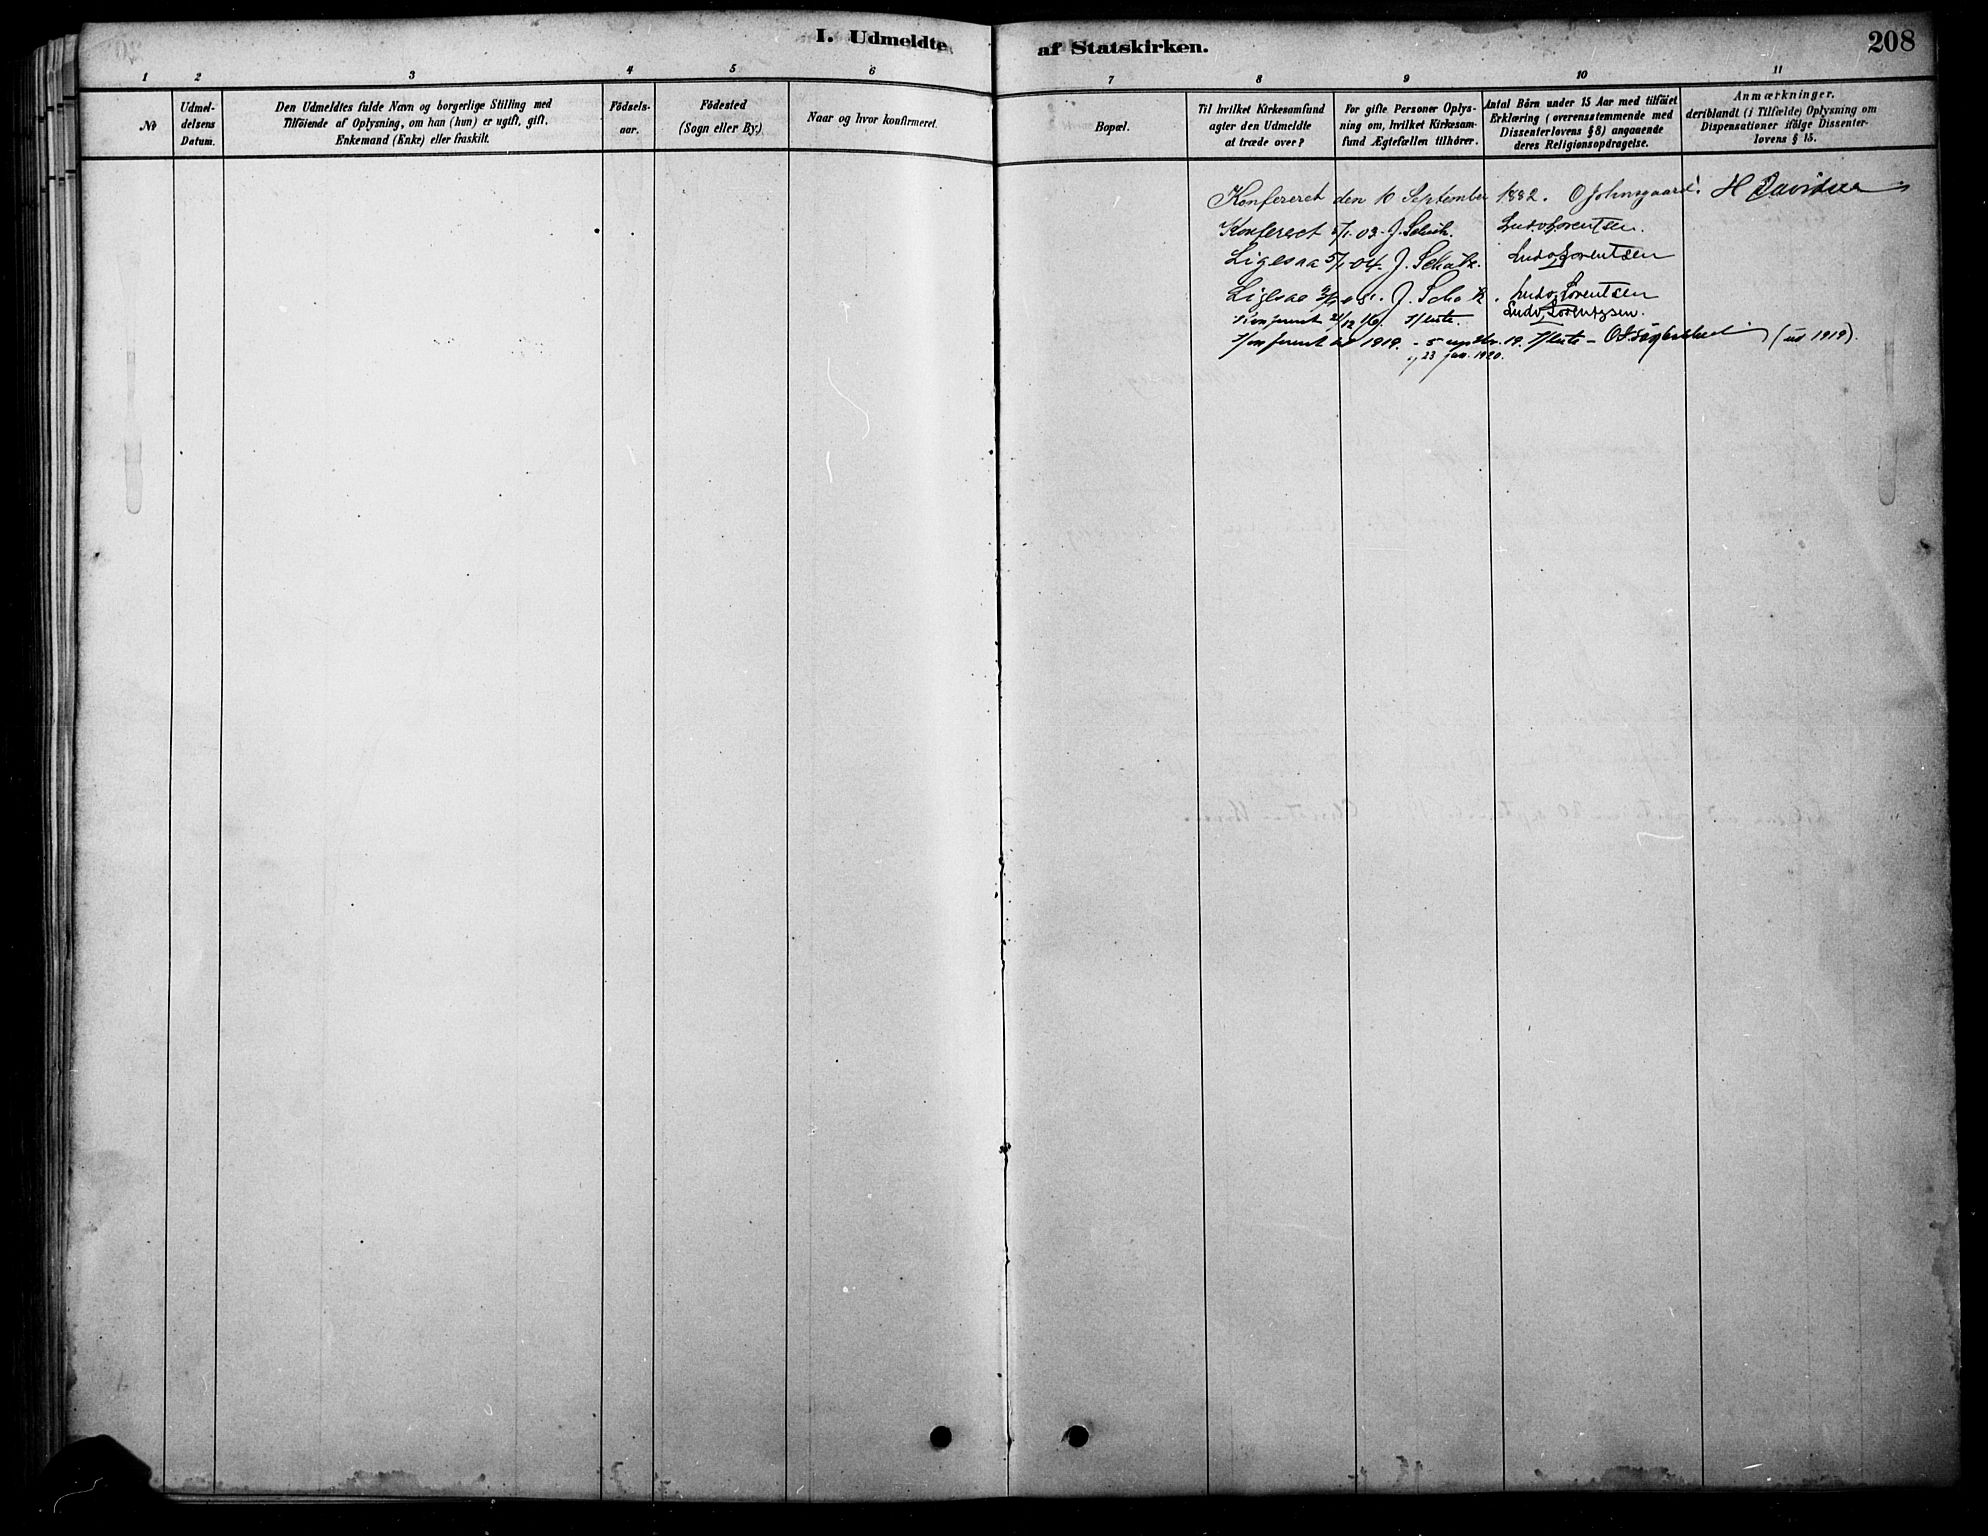 I. Udmeldte af Statskirken.
208
1 2 3 4 5 6 7 8 9 10 11
No
Udmel-
delsens
Datum.
Den Udmeldtes fulde Navn og borgerlige Stilling med
Tilföiende af Oplysning, om han (hun) er ugift, gift,
Enkemand (Enke) eller fraskilt.
Födsels-
aar.
Födested
(Sogn eller By.)
Naar og hvor konfirmeret.
Bopæl.
Til hvilket Kirkesamfund
agter den Udmeldte
at træde over?
For gifte Personer Oplys-
ning om, hvilket Kirkesam-
fund Ægtefællen tilhörer.
Antal Börn under 15 Aar med tilföiet
Erklæring (overensstemmende med
Dissenterlovens § 8) angaaende
deres Religionsopdragelse.
Anmærkninger.
deriblandt (i Tilfælde) Oplysning om
Dispensationer ifölge Dissenter-
lovens § 15.
Konfereret den 16 September 1882. O Johnsgaard. H Davidsen
Konfereret 5/1-03. J. Ludv Lorentsen.
Ligesaa 5/1-04. J. Ludv Lorentsen
Ligesaa J. Ludv Lorentsen
Konferert 21/12 16. Ludv Lorentzsen.
Konferert 1919. - 5 septbr. 19. (ut 1919).
23 jan. 1920.